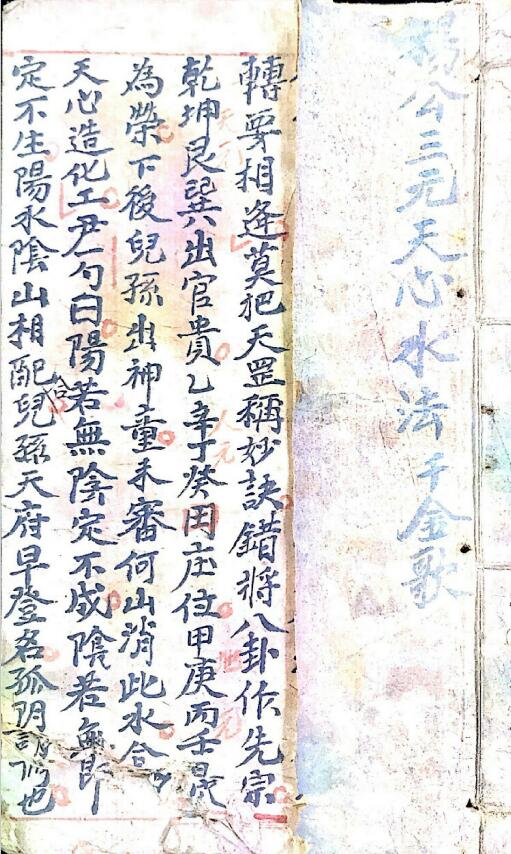 楊公三元天心水法千金歌
轉要相逢莫把天罡稱妙訣錯將八卦作先宗
乾坤艮巽出官貴乙辛丁癸田庄位甲庚丙壬
為榮下後兒孫出神童未審何山消此水合
天心造化工
句曰陽若無陰定不成陰若無
定不生陽水陰山相配合兒孫天府早登名
人元
元